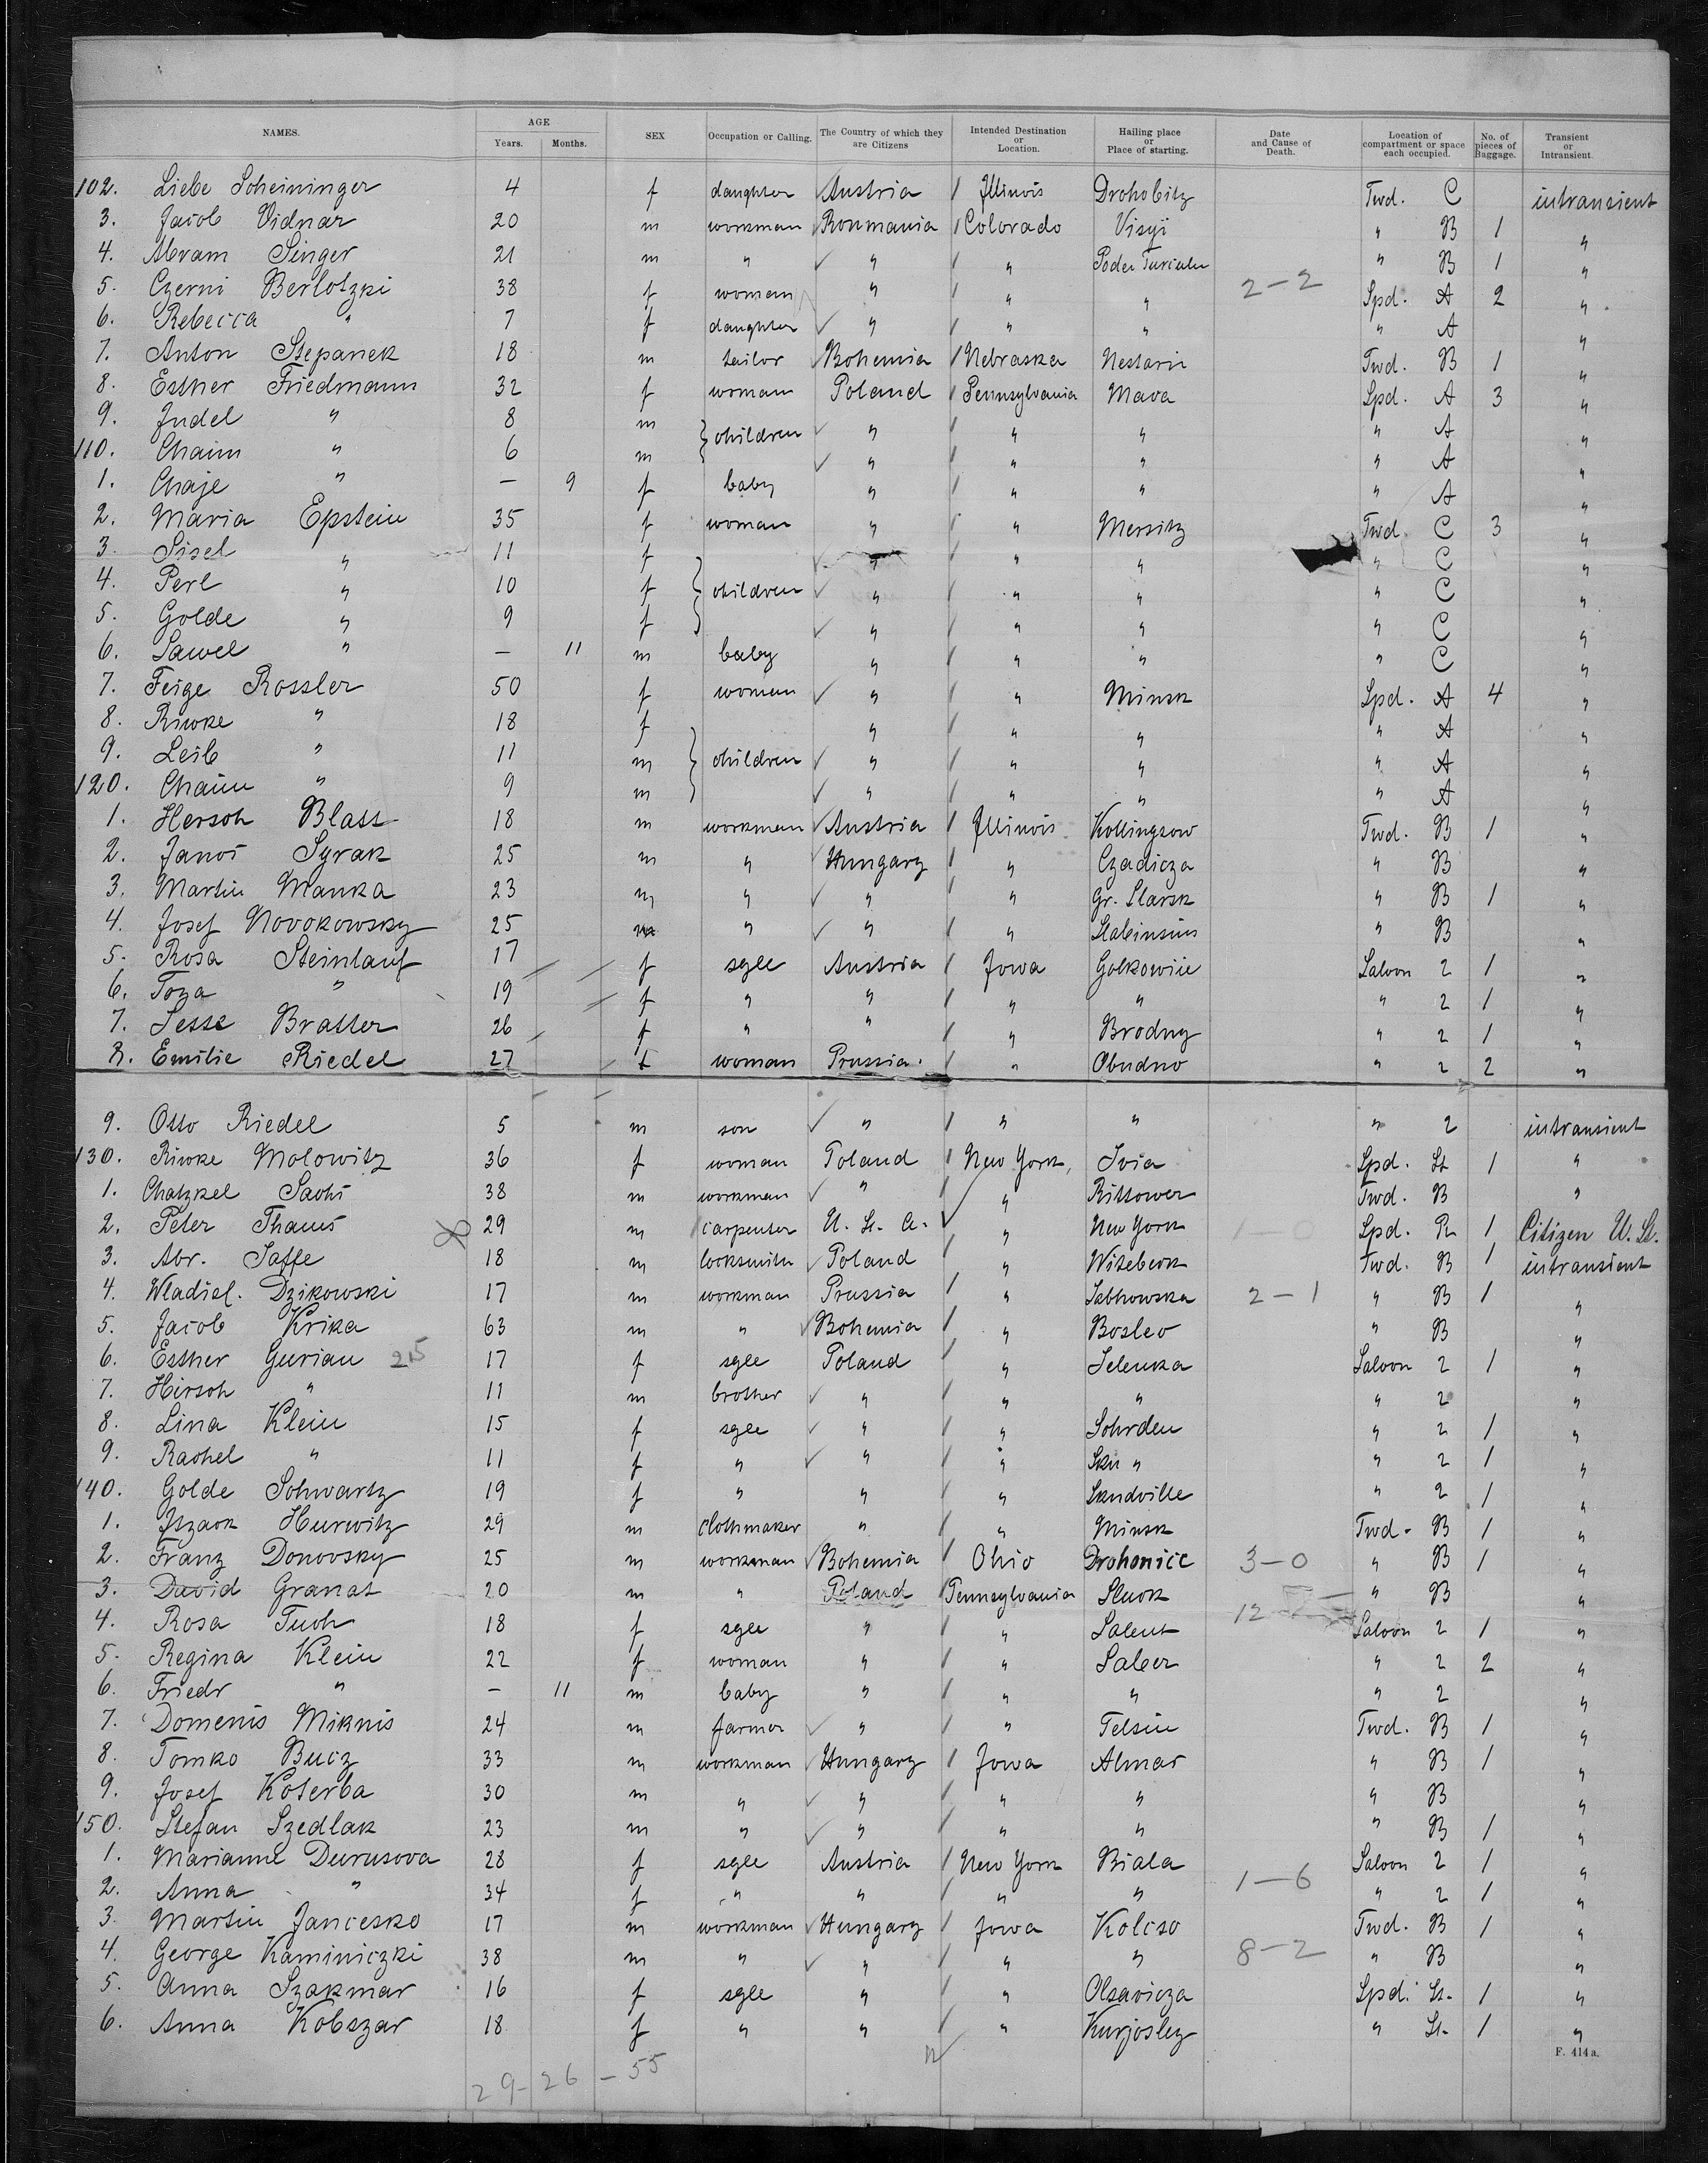 NAMES. AGE Years. Months. SEX Occupation or Calling. The Country of which they are Citizens Intended Destination or Location. Hailing place or Place of starting. Date and Cause of Death. Location of compartment or space each occupied. No. of pieces of Baggage. Transient or Intransient.
102. Liebe Scheininger 4 f daughter Austria Illinois Drohobitz Twd. C intransient
3. Jacob Vidnar 20 m workman Roumania Colorado Visyi " B 1 "
4. Abram Singer 21 m " " " Poder Turiulu " B 1 "
5. Czerni Berlotzki 38 f woman " " " 2-2 Spd. A 2 "
6. Rebecca " 7 f daughter " " " " A "
7. Anton Stepanek 18 m tailor Bohemia Nebraska Nestarin Twd. B 1 "
8. Esther Friedmann 32 f woman Poland Pennsylvania Mava Spd. A 3 "
9. Judel " 8 m children " " " " A "
110. Chaim " 6 m " " " " A "
1. Chaje " — 9 f baby " " " " A "
2. Maria Epstein 35 f woman " " Mersitz Twd. C 3 "
3. Sisel " 11 f " " " " C "
4. Perl " 10 f children " " " " C "
5. Golde " 9 f " " " " C "
6. Sawel " — 11 m baby " " " " C "
7. Feige Rossler 50 f woman " " Minsk Spd. A 4 "
8. Riwke " 18 f " " " " A "
9. Leib " 11 m children " " " " A "
120. Chaim " 9 m " " " " A "
1. Hersch Blass 18 m workman Austria Illinois Kollingsow Twd. B 1 "
2. Janos Syrak 25 m " Hungary " Czadicza " B "
3. Martin Manka 23 m " " " Gr. Slarsk " B 1 "
4. Josef Novokowsky 25 m " " " Stabinsius " B "
5. Rosa Steinlauf 17 f sgle Austria Iowa Golkowiie Saloon 2 1 "
6. Toza " 19 f " " " " " 2 1 "
7. Sesse Bratter 26 f " " " Brodny " 2 1 "
8. Emilie Riedel 27 f woman Prussia. " Obudno " 2 2 "
9. Otto Riedel 5 m son " " " " 2 intransient
130. Riwke Molowitz 36 f woman Poland New York, Ivia Spd. St 1 "
1. Chatzkel Sachs 38 m workman " " Rittower Twd. B "
2. Peter Thams 29 m carpenter U. St. A. " New York 1-0 Spd. R 1 Citizen U. St.
3. Abr. Jaffe 18 m locksmith Poland " Witebcok Twd. B 1 intransient
4. Wladisl. Dzikowski 17 m workman Prussia " Jabhowska 2-1 " B 1 "
5. Jacob Krika 63 m " Bohemia " Boslev " B "
6. Esther Gurian 25 17 f sgle Poland " Selenka Saloon 2 1 "
7. Hirsch " 11 m brother " " " " 2 "
8. Lina Klein 15 f sgle " " Sohrden " 2 1 "
9. Rachel " 11 f " " " Sku " " 2 1 "
140. Golde Schwartz 19 f " " " Skudville " 2 1 "
1. Iszack Hurwitz 29 m clothmaker " " Minsk Twd. B 1 "
2. Franz Donovsky 25 m workman Bohemia Ohio Drohonice 3-0 " B 1 "
3. David Granat 20 m " Poland Pennsylvania Sluck " B "
4. Rosa Tuch 18 f sgle " " Salent 12 Saloon 2 1 "
5. Regina Klein 22 f woman " " Saleer " 2 2 "
6. Friedr " — 11 m baby " " " " 2 "
7. Domenis Miknis 24 m farmer " " Telsin Twd. B 1 "
8. Tomko Bucz 33 m workman Hungary Iowa Almas " B 1 "
9. Josef Koterba 30 m " " " " " B "
150. Stefan Szedlak 23 m " " " " " B 1 "
1. Marianne Durusova 28 f sgle Austria New York Biala 1-6 Saloon 2 1 "
2. Anna " 34 f " " " " " 2 1 "
3. Martin Jancesko 17 m workman Hungary Iowa Kolcso Twd. B 1 "
4. George Kaminiczki 38 m " " " " 8-2 " B "
5. Anna Szakmar 16 f sgle " " Olsavicza Spd. St. 1 "
6. Anna Kobszar 18 f " " " Kurjosley " St. 1 "
F. 414a.
29-26-55